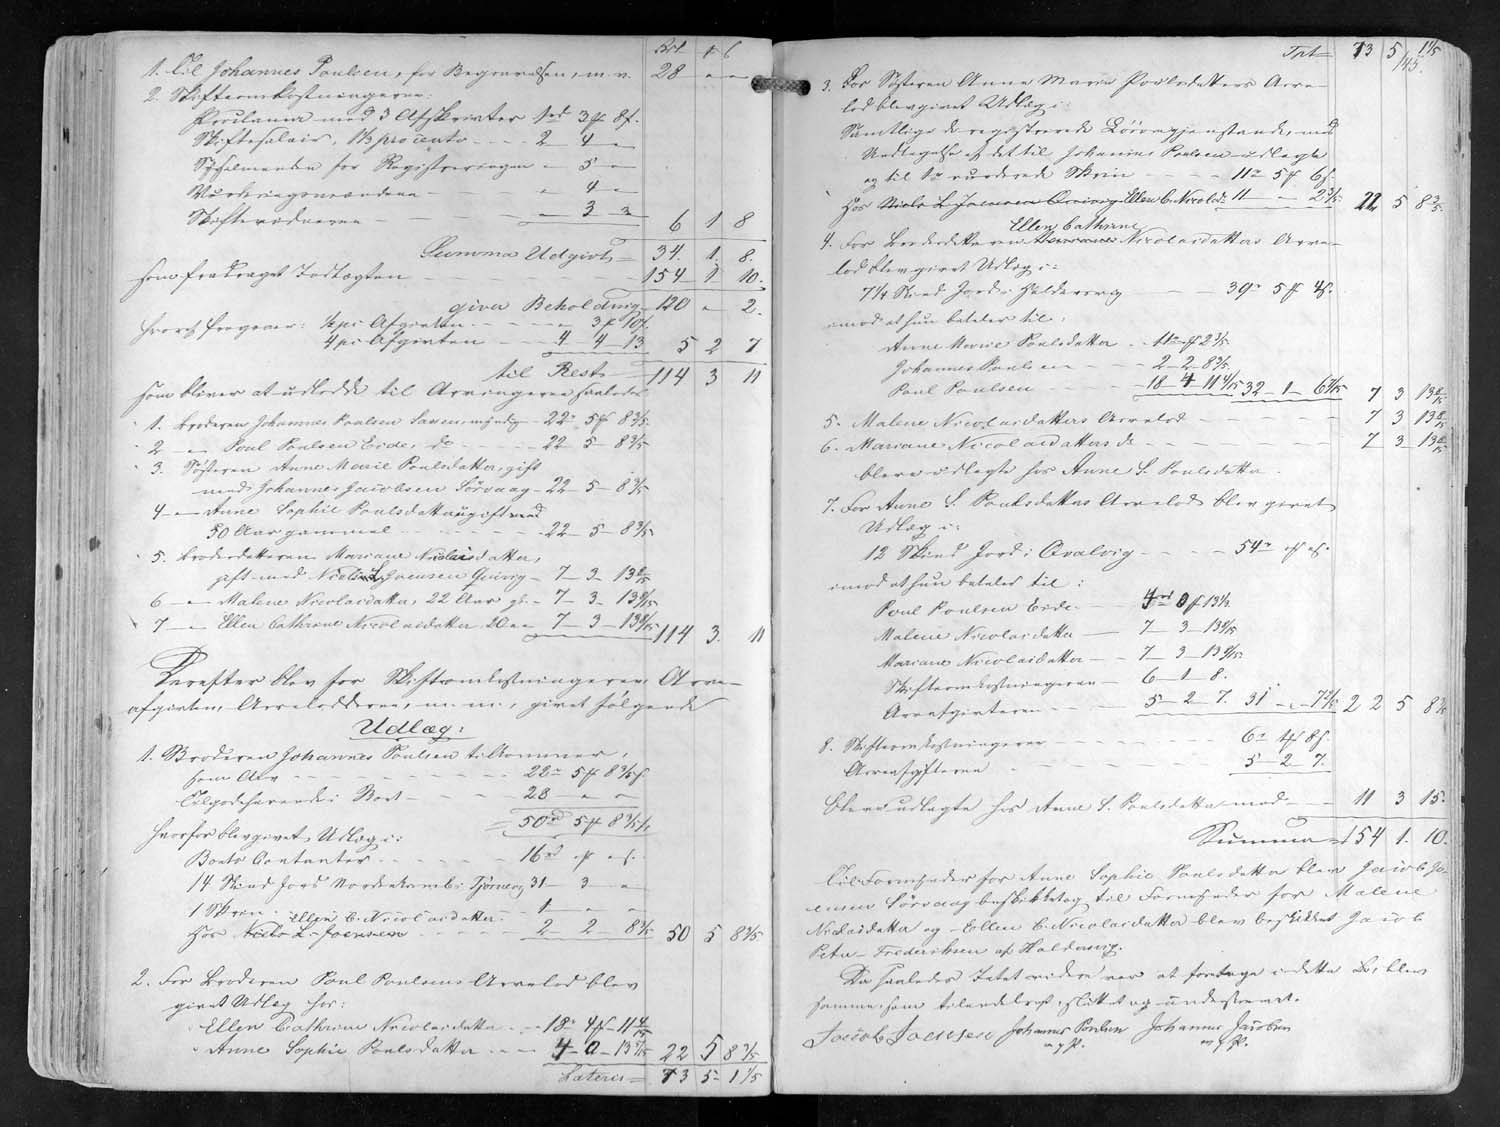 Rd. ₰ ß
1. Til Johannes Poulsen, for Begravelsen, m. v. 28 " "
2. Skifteomkostningerne:
Proclama med 3 Afskrivter 1 rd 3 ₰ 8 ß.
Skiftesalair, 1½ procento - - - 2 4 "
Sysselmanden for Registreringen - " 5 "
Vurderingsmændene - - - " 4 "
Skiftevidnerne - - - " 3 " 6 1 8
Summa Udgivt = 34. 1. 8.
som fradraget Indtægten - - - 154 1 10.
giver Beholdning 120 " 2.
hvoraf fragaaer: ½ pC Afgivten - - - " 3 ₰ 10 ß.
4 pC Afgivten - - - 4 4 13 5 2 7
til Rest 114 3 11
som bliver at udlodde til Arvingerne saaledes
1. Broderen Johannes Poulsen myndig 22 rd 5 ₰ 8 3/5
2 " Poul Poulsen Eide, do - - 22 5 8 3/5
3. Søsteren Anne Marie Poulsdatter, gift
med Johannes Jacobsen Sørvaag - 22 - 5 - 8 3/5
4 " Anne Sophie Poulsdatter ugift
50 Aar gammel - - - 22 - 5 - 8 3/5
5. Broderdatteren Mariane Nicolaisdatter,
gift med Niels L. Joensen Qvivig - 7 - 3 - 13 8/15
6 " Malene Nicolaidatter, 22 Aar gl. - 7 - 3 - 13 8/15
7 " Ellen Cathrine Nicolaidatter 20 " " 7 - 3 - 13 8/15 114 3. 11
Derefter blev for Skifteomkostningerne, Arve-
afgivten, Arvelodderne, m. m., givet følgende
Udlæg:
1. Broderen Johannes Poulsen tilkommer,
som Arv - - - 22 rd 5 ₰ 8 3/5 ß
Tilgodehavende i Boet - - 28 " "
= 50 rd 5 ₰ 8 3/5 ß
hvorfor blev givet Udlæg i:
Boets Contanter - - - 16 rd " ₰ " ß.
14 Skind Jord Nordenkamb i Tjørnevig 31 - 3 - "
1 Skrin - - - 1 " "
Ellen C. Nicolaidatter
Hos Niels L. Joensen - - - 2 - 2 - 8 3/5 50 5 8 3/5
2. For Broderen Poul Poulsens Arvelod blev
givet Udlæg hos:
Ellen Cathrine Nicolaidatter - - 18 rd 4 ₰ 11 4/15
Anne Sophie Poulsdatter - - - 4 - 0 - 13 1/3 22 5 8 3/5
Lateris = 73 5 - 1 1/5
Tpt = 73 5 1 1/5
/145.
3. For Søsteren Anne Marie Poulsdatters Arve-
lod blev givet Udlæg i:
Samtlige de registrerede Løsøregjenstande, med
Undtagelse af det til Johannes Poulsen udlagte
og til 1 rd vurderede Skrin - - - 11 rd 5 ₰ 6 ß.
Hos Niels L Joensen Qvivig Ellen C. Nicolaid. 11 " 2 3/5 22 5 8 3/5
Ellen Cathrine
4. For Broderdatteren Mariane Nicolaidatters Arve-
lod blev givet Udlæg i:
7¼ Skind Jord i Haldersvig - - - 39 rd 5 ₰ 4 ß.
imod at hun betaler til:
Anne Marie Poulsdatter - 11 rd " ₰ 2 3/5
Johannes Poulsen - - 2 - 2 - 8 3/5
Poul Poulsen - - - 18 4 11 4/15 32 - 1 - 6 7/15 7 3 13 8/15
5. Malene Nicolaidatters Arvelod - - - 7 3 13 8/15
6. Mariane Nicolaidatters do - - - 7 3 13 8/15
bleve udlagte hos Anne S. Poulsdatter.
7. For Anne S. Poulsdatters Arvelod blev givet
Udlæg i:
12 Skind Jord i Qvalvig - - - 54 rd " ₰ " ß.
imod at hun betaler til:
Poul Poulsen Eide - - 4 rd 0 ₰ 13 1/3
Malene Nicolaidatter - 7 - 3 - 13 8/15
Mariane Nicolaidatter - - 7 - 3 - 13 8/15
Skifteomkostningerne - 6 - 1 - 8.
Arveafgivterne - - 5 - 2 - 7. 31 " 7 2/5 22 5 8 3/5
8. Skifteomkostningerne - - - 6 rd 1 ₰ 8 ß.
Arveafgifterne - - - 5 - 2 7.
bleve udlagte hos Anne S. Poulsdatter med - - 11 3 15.
Summa = 154 1. 10.
Til Formynder for Anne Sophie Poulsdatter blev Jacob Jo-
ensen Sørvaag beskikket og til Formynder for Malene
Nicolaidatter og Ellen C. Nicolaidatter blev beskikket Jacob
Peter Frederiksen af Haldersvig.
Da saaledes Intet videre var at foretage i dette Bo, blev
samme, som tilendebragt, sluttet og underskrevet.
Jacob Joensen Johannes Poulsen Johannes Jacobsen
m. f. P. m. f. P.